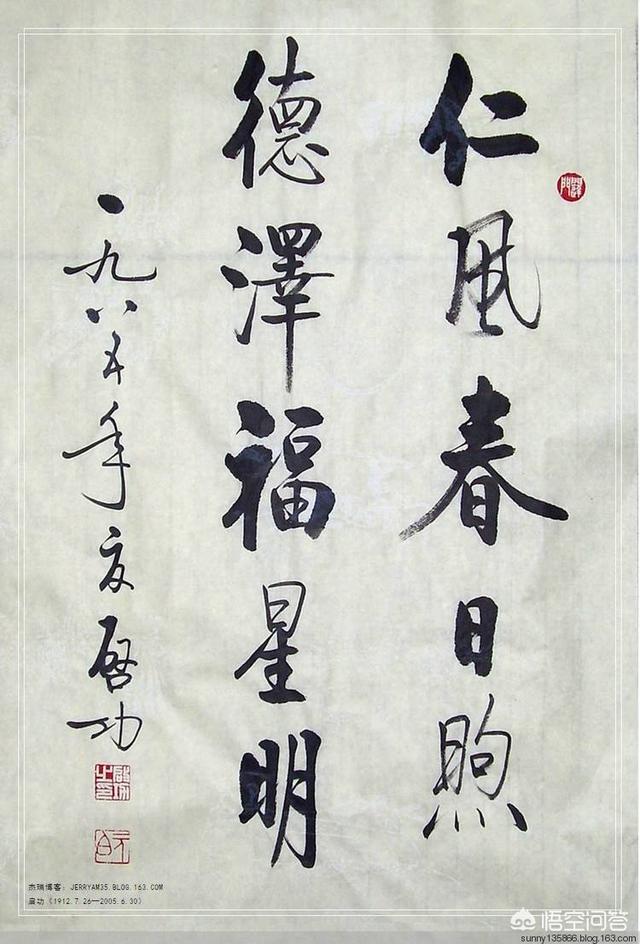 仁風春日煦
德澤福星明
一九八五年夏 啓功
啓功之印
元白
杰瑞博客：JERRYAM35.BLOG.163.COM
启功（1912.7.26—2005.6.30）
悟空问答
sunny135866.blog.163.com